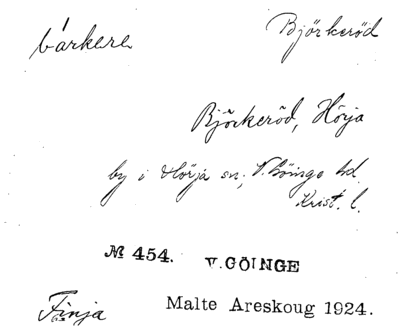 bärkere Björkeröd
Björkeröd, Hörja
by i Hörja sn, V. Göinge hd.
Krist. l.
№ 454. V. GÖINGE
Finja Malte Areskoug 1924.